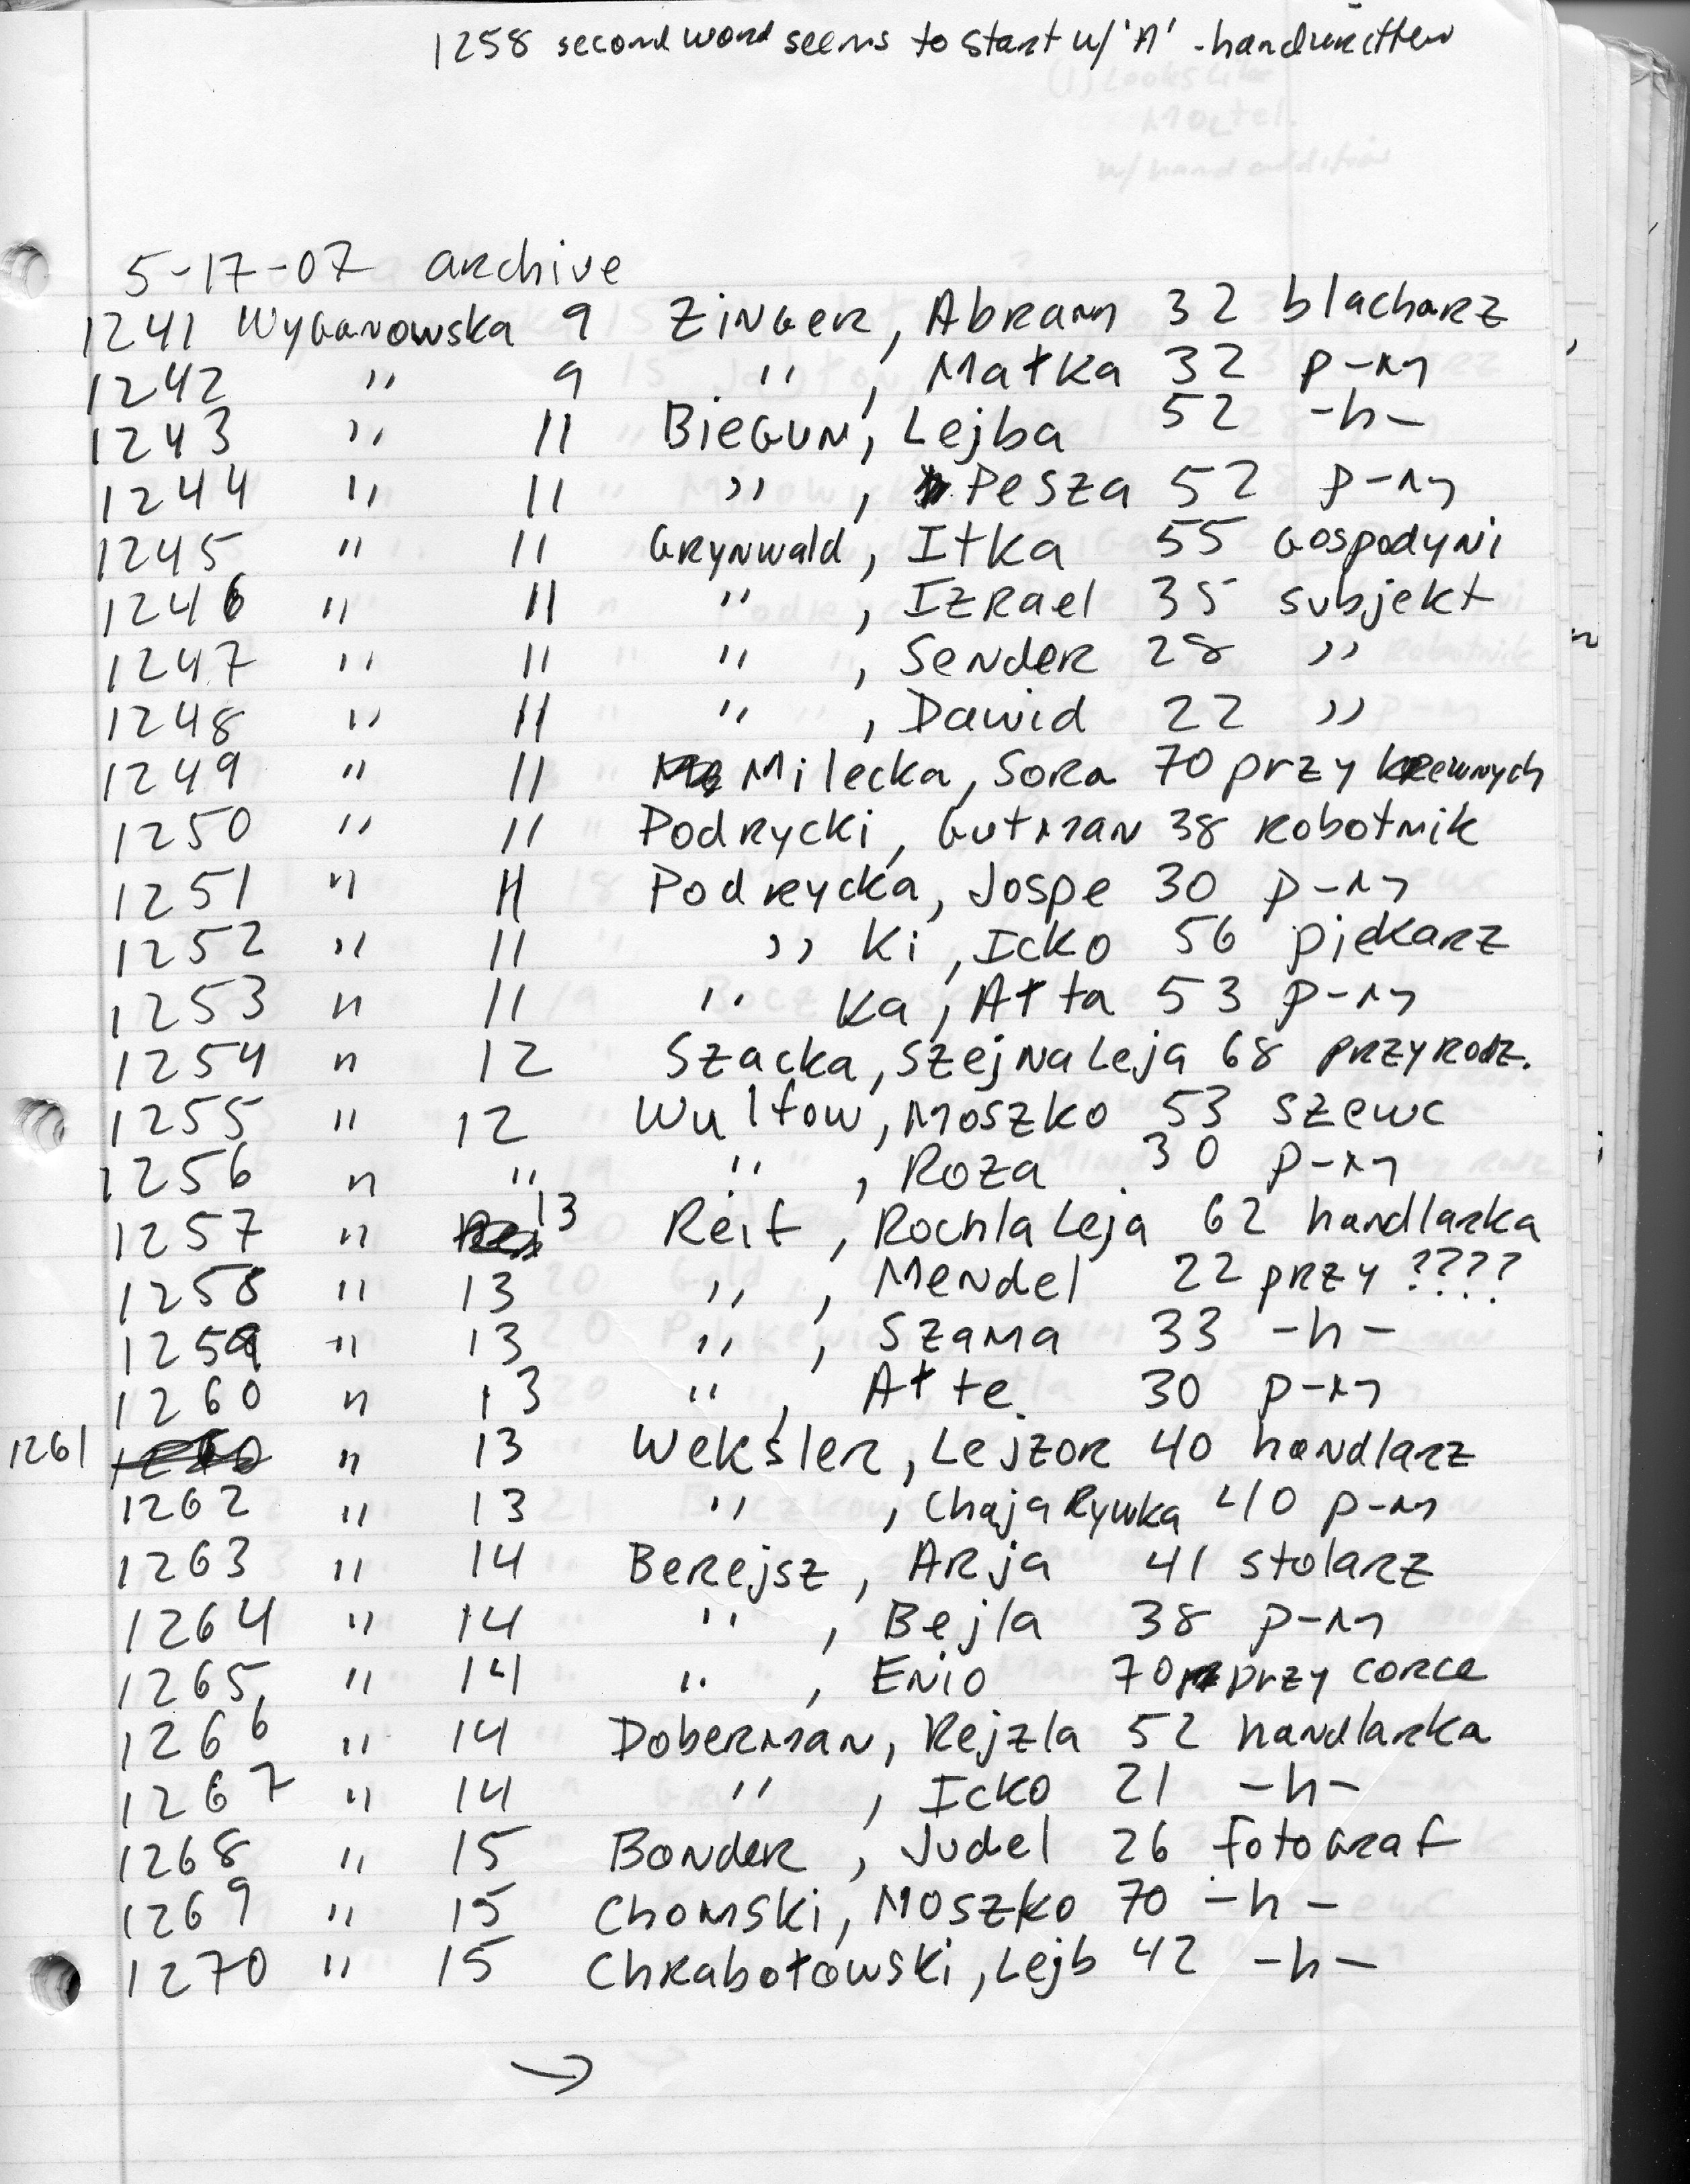 1258 second word seems to start w/ 'A' - handwritten
5-17-07 archive
1241 Wyganowska 9 Zinger, Abram 32 blacharz
1242 " 9 " , Małka 32 p-m
1243 " 11 Biegun, Lejba 52 -h-
1244 " 11 " , Pesza 52 p-m
1245 " 11 Grynwald, Itka 55 gospodyni
1246 " 11 " , Izrael 35 subjekt
1247 " 11 " , Sender 28 "
1248 " 11 " , Dawid 22 "
1249 " 11 Milecka, Sora 70 przy krewnych
1250 " 11 Podrycki, Gutman 38 robotnik
1251 " 11 Podrycka, Jospe 30 p-m
1252 " 11 " ki, Icko 56 piekarz
1253 " 11 " ka, Ałta 53 p-m
1254 " 12 Szacka, Szejna Leja 68 przy rodz.
1255 " 12 Wulfow, Moszko 53 szewc
1256 " " " , Roza 30 p-m
1257 " 13 Reif, Rochla Leja 62 handlarka
1258 " 13 " , Mendel 22 przy ????
1259 " 13 " , Szama 33 -h-
1260 " 13 " , Ałte 30 p-m
1261 " 13 Weksler, Lejzor 40 handlarz
1262 " 13 " , Chaja Rywka 40 p-m
1263 " 14 Berejsz, Arja 41 stolarz
1264 " 14 " , Bejla 38 p-m
1265, " 14 " , Enio 70 przy corce
1266 " 14 Doberman, Rejzla 52 handlarka
1267 " 14 " , Icko 21 -h-
1268 " 15 Bonder, Judel 26 fotograf
1269 " 15 Chomski, Moszko 70 -h-
1270 " 15 Chrabołowski, Lejb 42 -h-
→